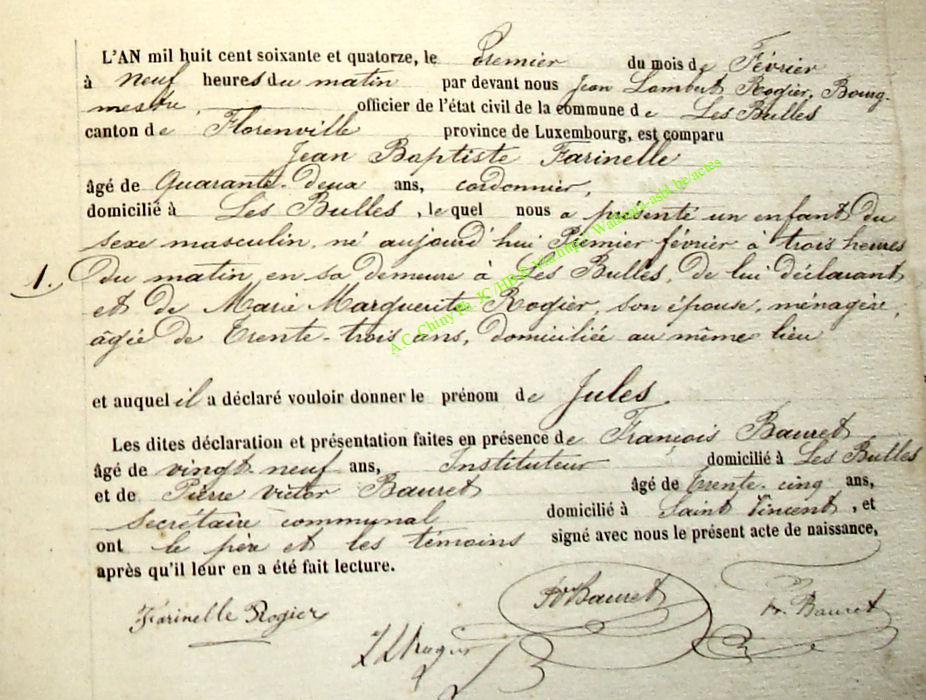 L'AN mil huit cent soixante et quatorze, le Premier du mois de Février
à neuf heures du matin par devant nous Jean Lambert Rogier, Bourg-
mestre, officier de l'état civil de la commune de Les Bulles
canton de Florenville province de Luxembourg, est comparu
Jean Baptiste Farinelle
âgé de Quarante-deux ans, cordonnier,
domicilié à Les Bulles, lequel nous a présenté un enfant du
sexe masculin, né aujourd'hui Premier février à trois heures
1. du matin, en sa demeure à Les Bulles, de lui déclarant
et de Marie Marguerite Rogier, son épouse, ménagère,
âgée de Trente-trois ans, domiciliée au même lieu
et auquel il a déclaré vouloir donner le prénom de Jules.
Les dites déclaration et présentation faites en présence de François Bauret
âgé de vingt neuf ans, Instituteur domicilié à Les Bulles
et de Pierre victor Bauret âgé de Trente-cinq ans,
secrétaire communal domicilié à Saint Vincent, et
ont le père et les témoins signé avec nous le présent acte de naissance,
après qu'il leur en a été fait lecture.
Farinelle Rogier Bauret Fr. Bauret
J L Rogier
A.C. Chiny